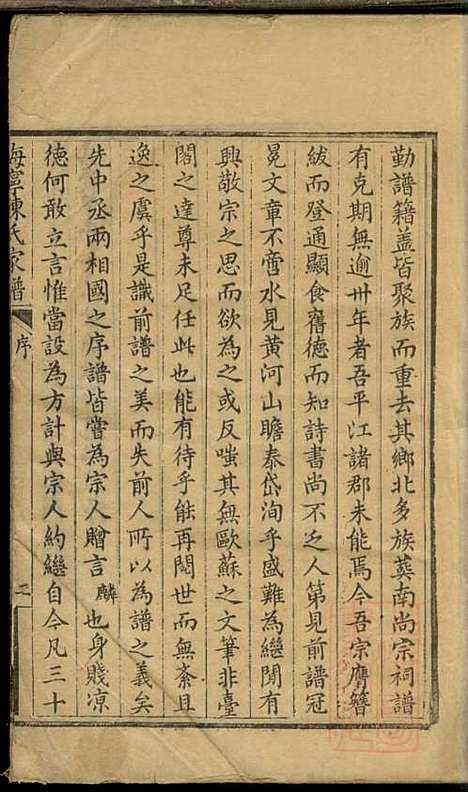 勤譜籍蓋皆聚族而重去其鄉北多族葬南尚宗祠譜
有克期無逾卅年者吾平江諸郡未能焉今吾宗膺簪
紱而登通顯食舊德而知詩書尚不乏人第見前譜冠
冕文章不啻水見黃河山瞻泰岱洵乎盛難為繼間有
興敬宗之思而欲為之或反嗤其無歐蘇之文筆非臺
閣之達尊未足任此也能有待乎能再閱世而無紊且
逸之虞乎是識前譜之美而失前人所以為譜之義矣
先中丞兩相國之序譜皆嘗為宗人贈言麟也身賤凉
德何敢立言惟當設為方計與宗人約繼自今凡三十
海寧陳氏家譜 序 二